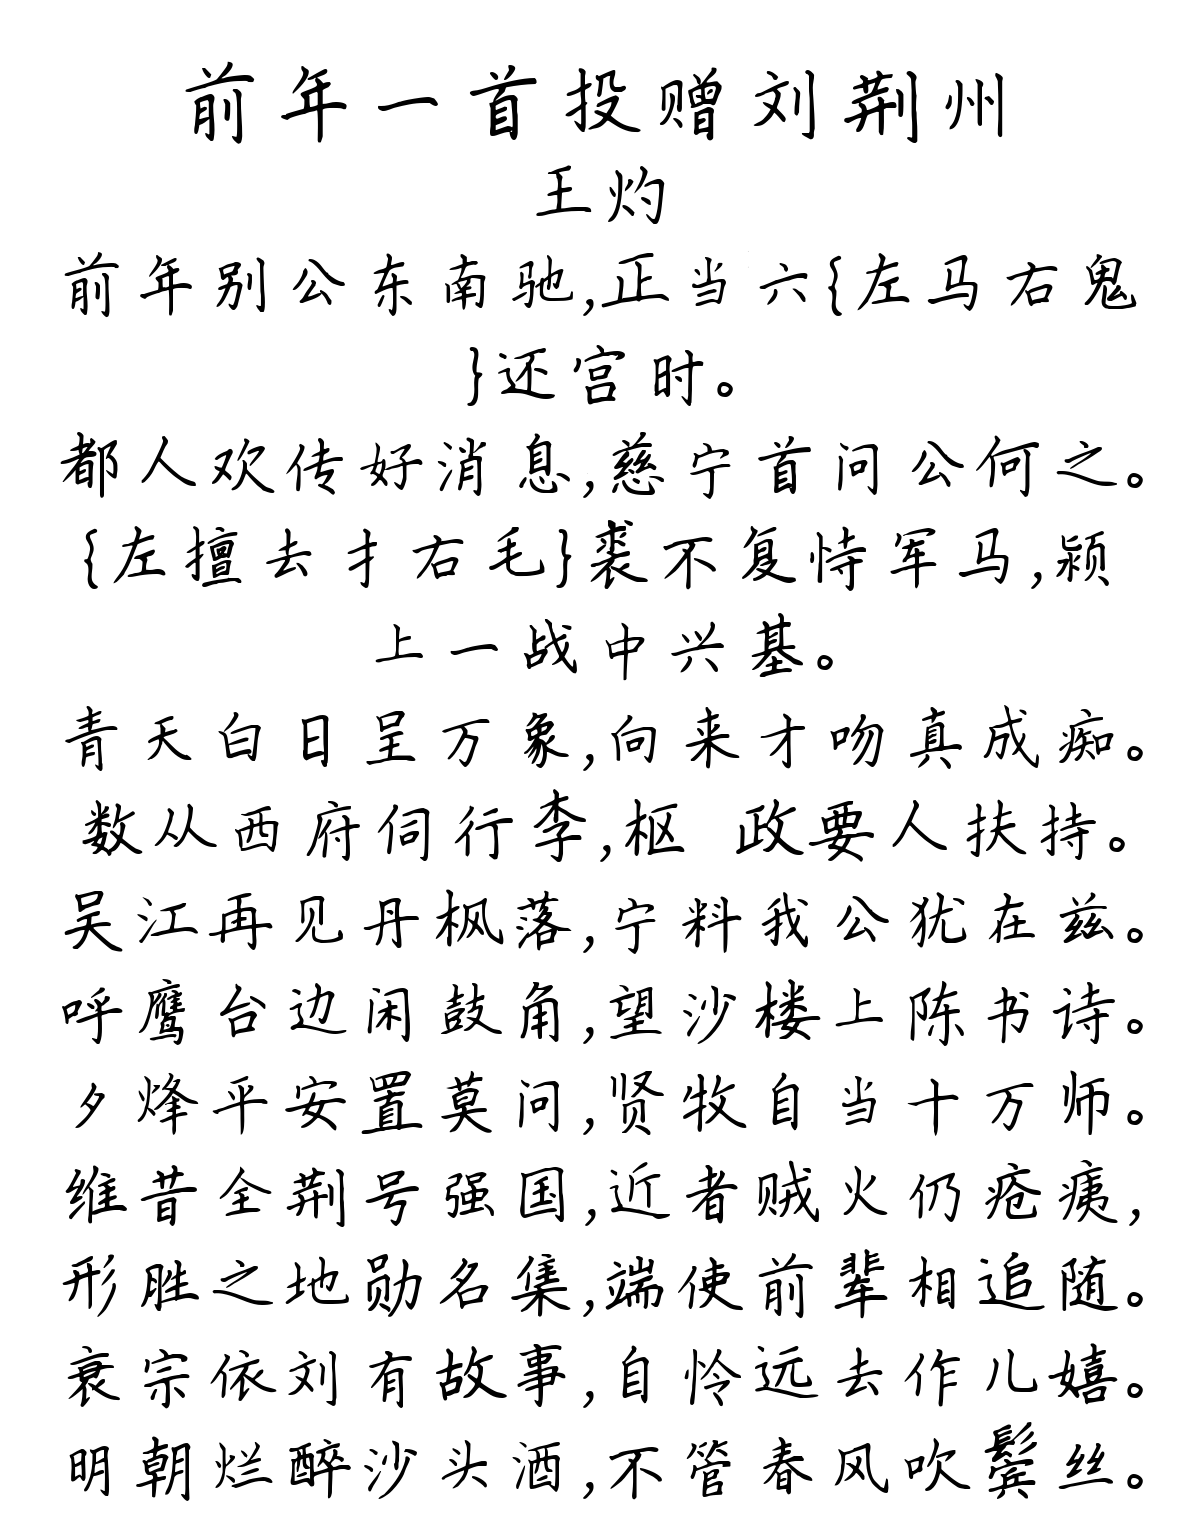 前年一首投赠刘荆州
王灼
前年别公东南驰,正当六{左马右鬼
}还宫时。
都人欢传好消息,慈宁首问公何之。
{左擅去扌右毛}裘不复恃军马,颍
上一战中兴基。
青天白日呈万象,向来才吻真成痴。
数从西府伺行李,枢 政要人扶持。
吴江再见丹枫落,宁料我公犹在兹。
呼鹰台边闲鼓角,望沙楼上陈书诗。
夕烽平安置莫问,贤牧自当十万师。
维昔全荆号强国,近者贼火仍疮痍,
形胜之地勋名集,端使前辈相追随。
衰宗依刘有故事,自怜远去作儿嬉。
明朝烂醉沙头酒,不管春风吹鬓丝。